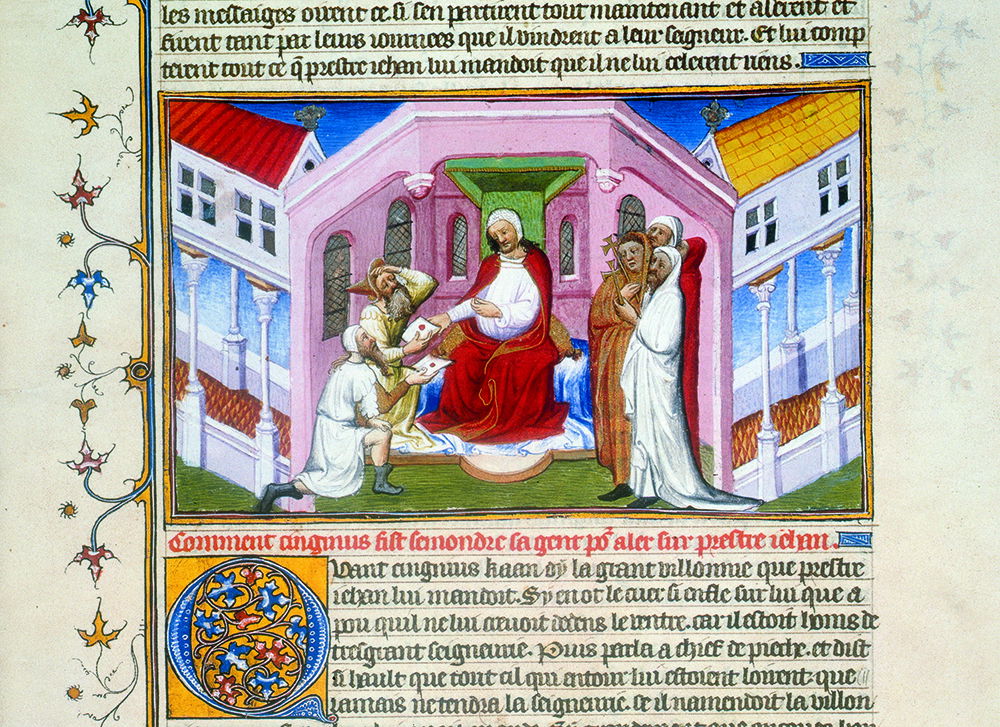 les messaiges ourent ce. si sen partirent tout maintenant et alerent et
firent tant par leurs iournees que il vindrent a leur seigneur. Et lui comp
terent tout ce q̄ prestre iehan lui mandoit que il ne lui celerent riens.
Comment cinginus fist semondre sa gent po͛ aler sur prestre iehan.
Quant cingnius kaan oÿ la grant villonnie que prestre
iehan lui mandoit. Sy en ot le cuer si enfle sur lui que a
pou qu il ne lui creuoit dedens le ventre. car il estoit homs de
tresgrant seigneurie. Puis parla a chief de pieche. et dist
si hault que tout cil qui antour lui estoient loirent. que
iamais ne tendra la seigneurie. se il namendoit la villon